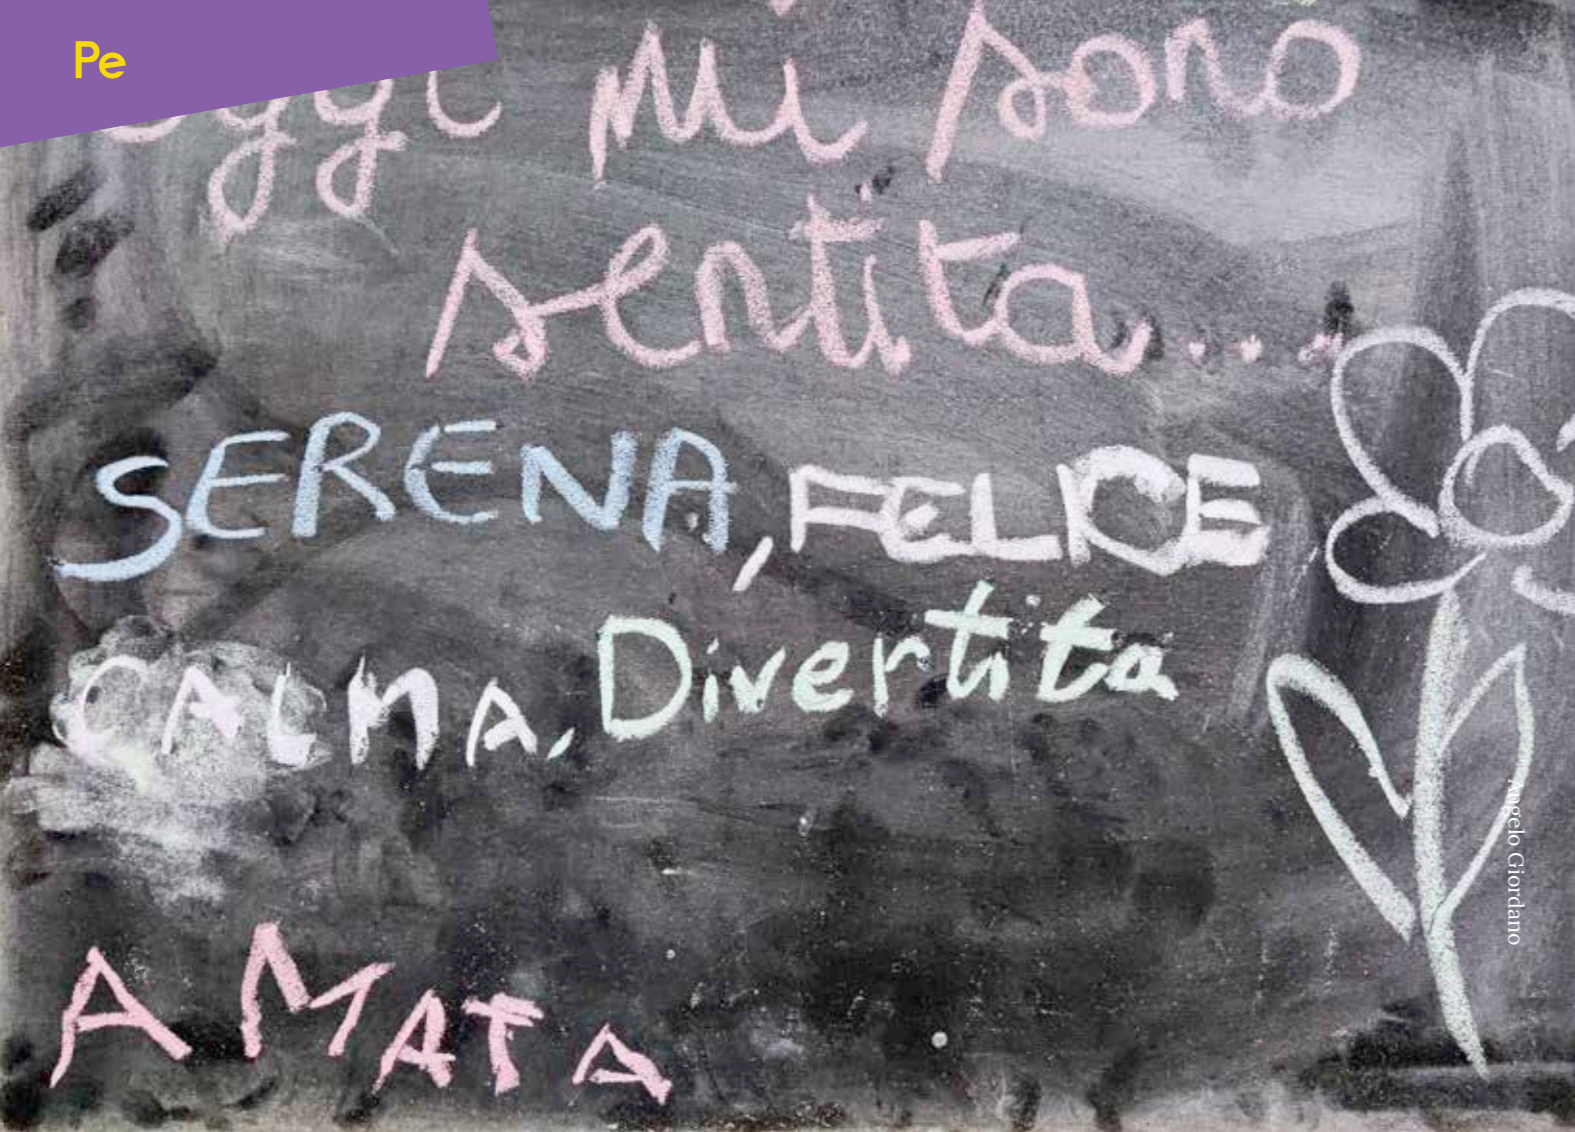 Pe
oggi mi sono
sentita...
SERENA, FELICE
CALMA, Divertita
AMATA
Angelo Giordano